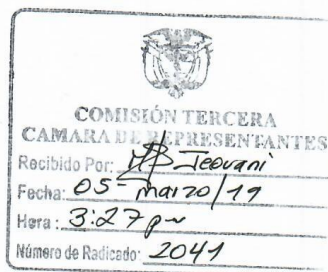 COMISIÓN TERCERA
CAMARA DE REPRESENTANTES
Recibido Por: Jeovani
Fecha: 05-marzo/19
Hora: 3:27 pm
Número de Radicado: 2041